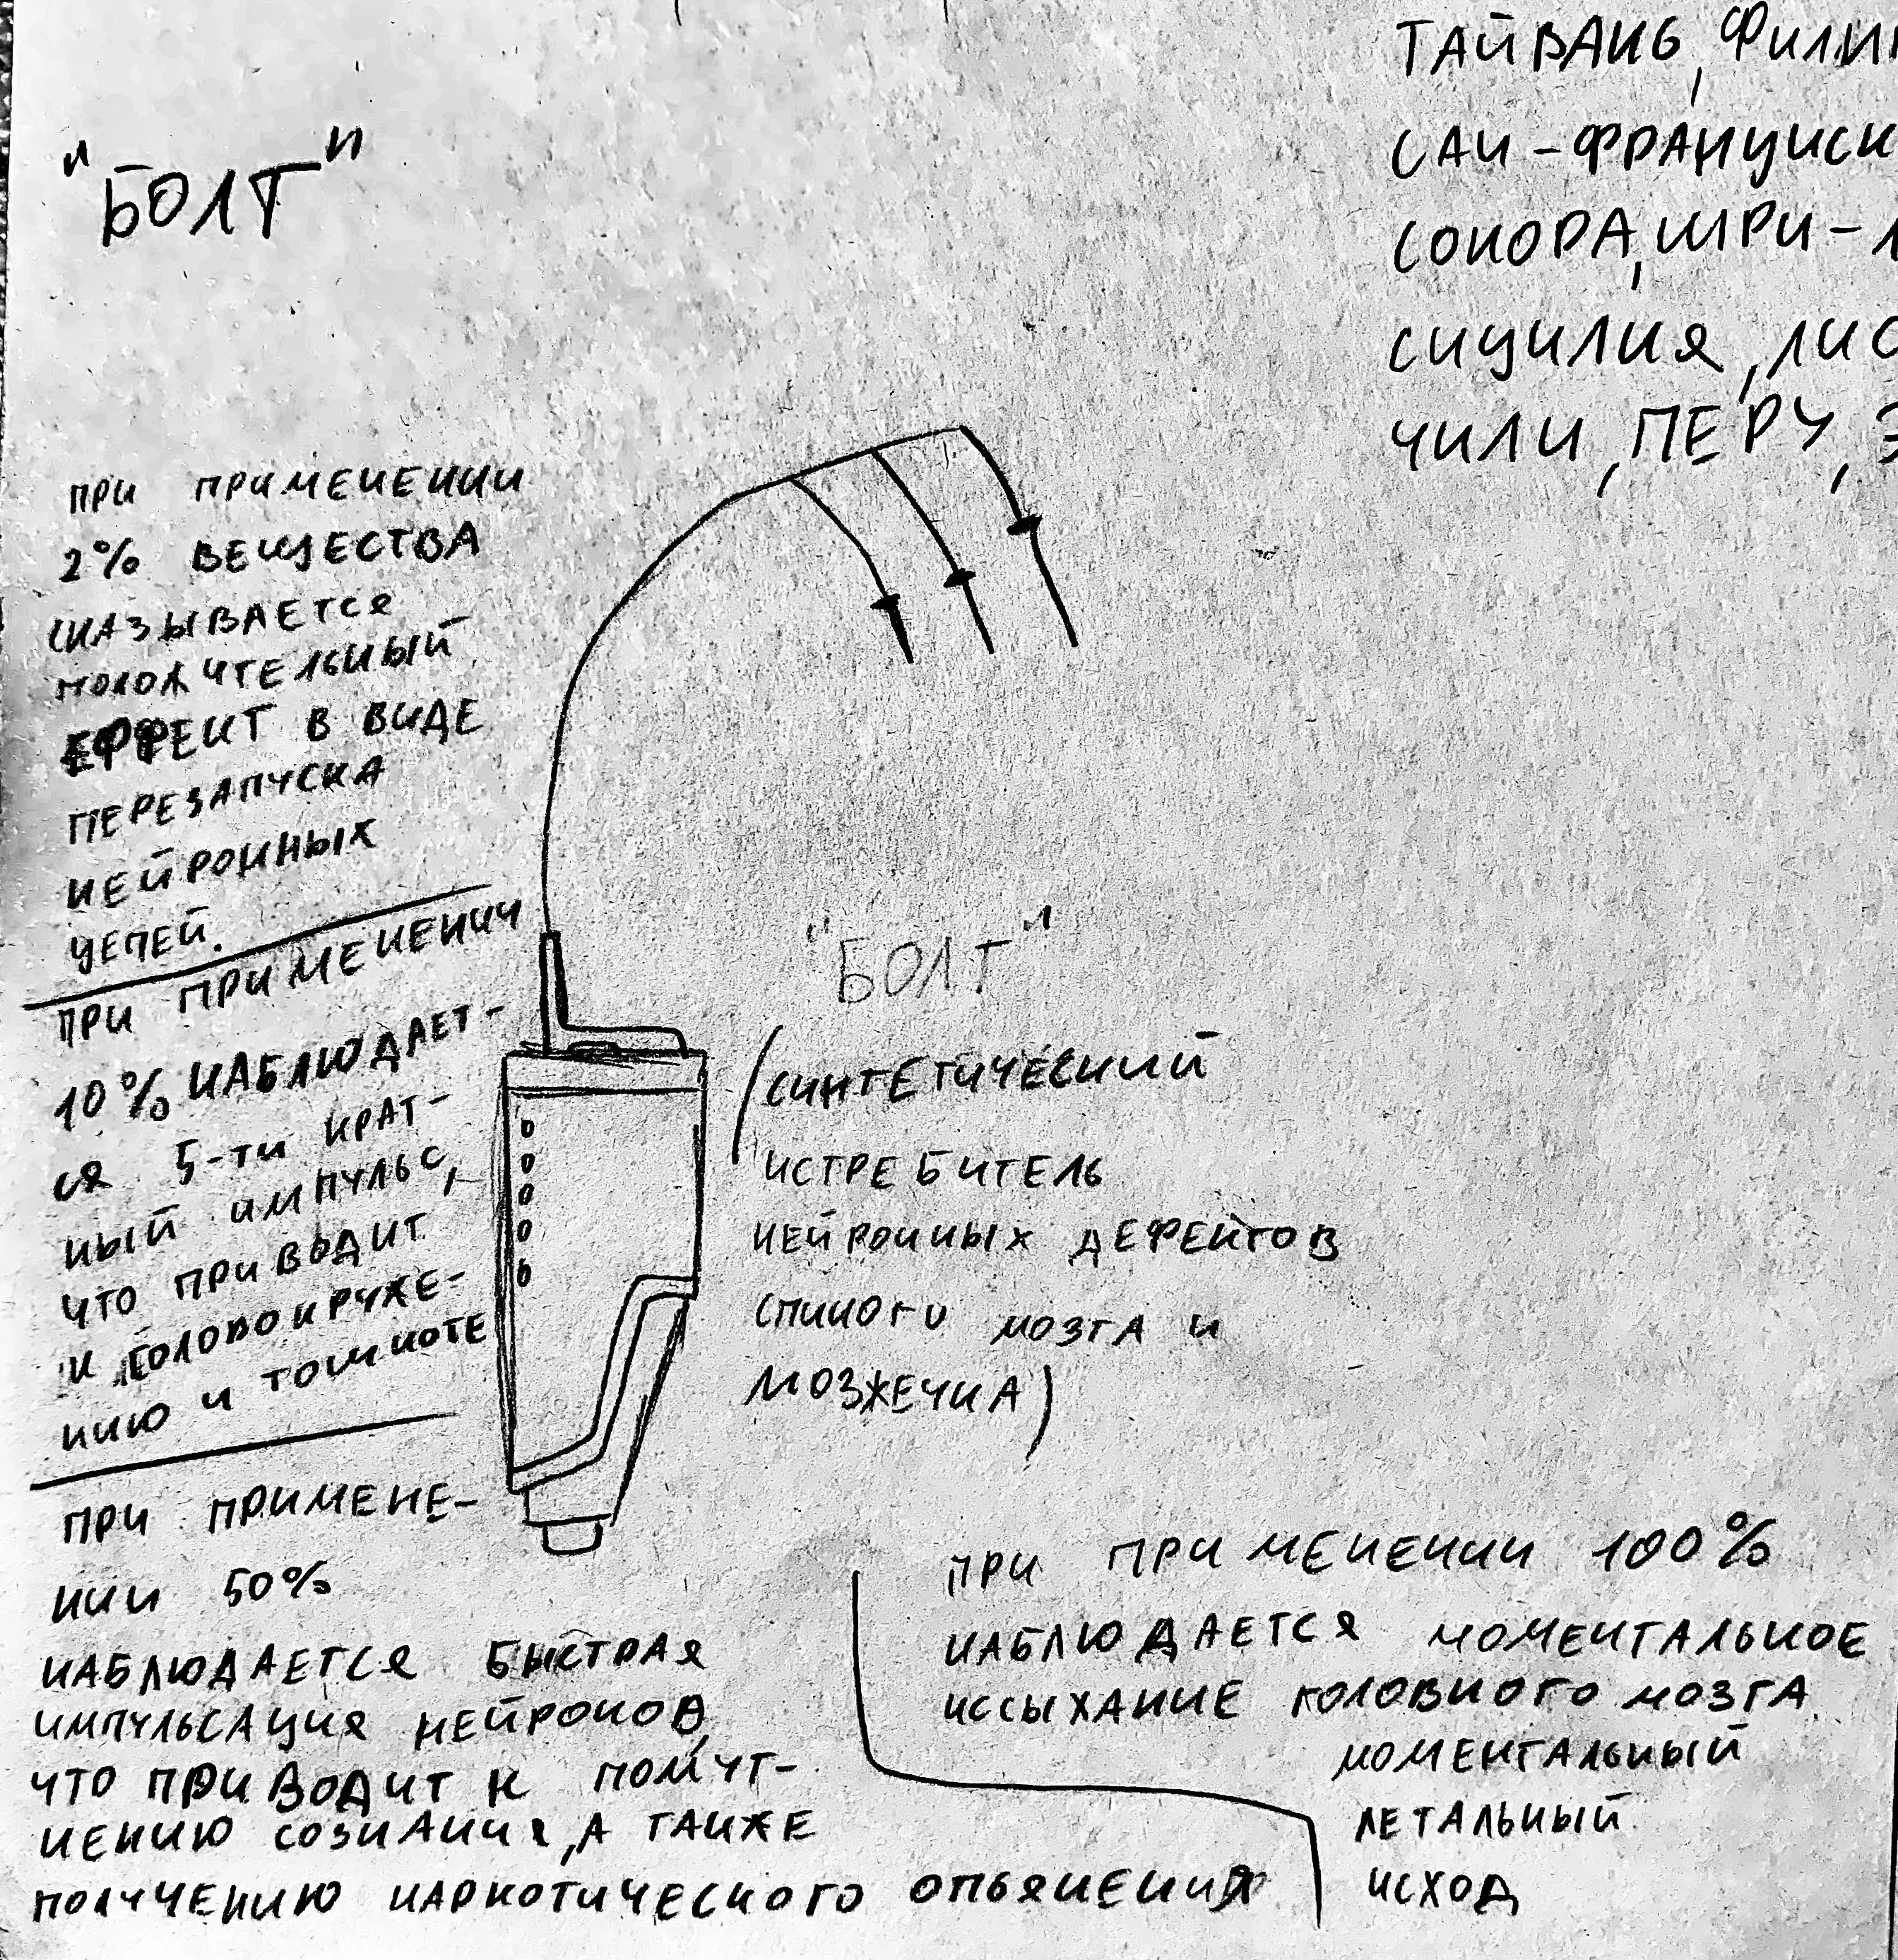 "БОЛТ"
ТАЙВАНЬ, ФИЛИП
САН-ФРАНЦИСК
СОНОРА, ШРИ-Л
СИЦИЛИЯ, ЛИС
ЧИЛИ, ПЕРУ, Э
ПРИ ПРИМЕНЕНИИ
2% ВЕЩЕСТВА
СКАЗЫВАЕТСЯ
ПОЛОЖИТЕЛЬНЫЙ
ЕФФЕКТ В ВИДЕ
ПЕРЕЗАПУСКА
НЕЙРОННЫХ
ЦЕПЕЙ.
ПРИ ПРИМЕНЕНИИ
10% НАБЛЮДАЕТ-
СЯ 5-ТИ КРАТ-
НЫЙ ИМПУЛЬС,
ЧТО ПРИВОДИТ
К ГОЛОВОКРУЖЕ-
НИЮ И ТОШНОТЕ
ПРИ ПРИМЕНЕ-
НИИ 50%
НАБЛЮДАЕТСЯ БЫСТРАЯ
ИМПУЛЬСАЦИЯ НЕЙРОНОВ,
ЧТО ПРИВОДИТ К ПОМУТ-
НЕНИЮ СОЗНАНИЯ, А ТАКЖЕ
ПОЛУЧЕНИЮ НАРКОТИЧЕСКОГО ОПЬЯНЕНИЯ
"БОЛТ"
(СИНТЕТИЧЕСКИЙ
ИСТРЕБИТЕЛЬ
НЕЙРОННЫХ ДЕФЕКТОВ
СПИНОГО МОЗГА И
МОЗЖЕЧКА)
ПРИ ПРИМЕНЕНИИ 100%
НАБЛЮДАЕТСЯ МОМЕНТАЛЬНОЕ
ИССЫХАНИЕ ГОЛОВНОГО МОЗГА.
МОМЕНТАЛЬНЫЙ
ЛЕТАЛЬНЫЙ
ИСХОД